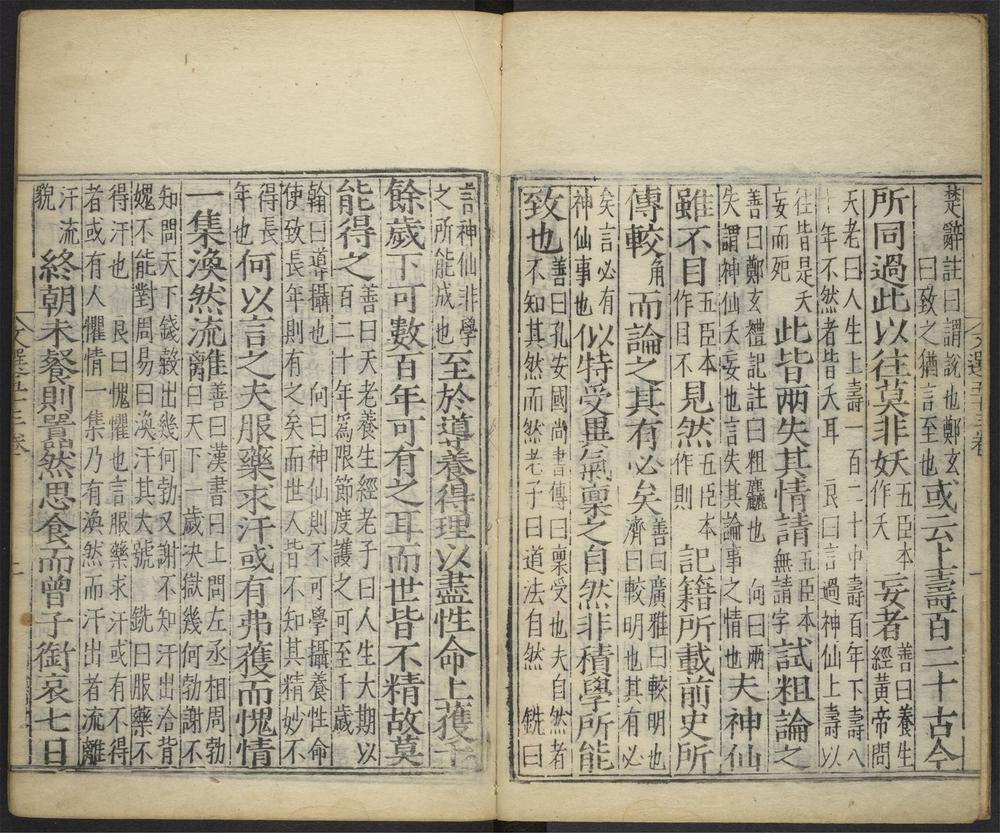 楚辭註曰謂說也鄭玄曰致之猶言至也或云上壽百二十古今
所同過此以往莫非妖五臣本作夭妄者善曰養生經黃帝問
天老曰人生上壽一百二十中壽百年下壽八
十年不然者皆夭耳 良曰言過神仙上壽以
往皆是夭妄而死此皆兩失其情請五臣本無請字試粗論之
善曰鄭玄禮記註曰粗麤也 向曰兩失謂神仙夭妄也言失其論事之情也夫神仙
雖不目五臣本作目不見然五臣本作則記籍所載前史所
傳較角而論之其有必矣善曰廣雅曰較明也濟曰較明也其有必
矣言必有神仙事也似特受異氣稟之自然非積學所能
致也善曰孔安國尚書傳曰稟受也夫自然者不知其然而然老子曰道法自然 銑曰
文選五十三卷 一
言神仙非學之所能成也至於道養得理以盡性命上獲千
餘歲下可數百年可有之耳而世皆不精故莫
能得之善曰天老養生經老子曰人生大期以百二十年為限節度護之可至千歲
翰曰導攝也 向曰神仙則不可學攝養性命
使致長年則有之矣而世人皆不知其精妙不
得長年也何以言之夫服藥求汗或有弗獲而愧情
一集渙然流離善曰漢書曰上問左丞相周勃曰天下一歲決獄幾何勃謝不
知問天下錢穀出幾何勃又謝不知汗出洽背
媿不能對周易曰渙汗其大號 銑曰服藥不
得汗也 良曰愧懼也言服藥求汗或有不得
者或有人懼情一集乃有渙然而汗出者流離
汗流貌終朝未餐則囂然思食而曾子銜哀七日
文選五十三卷 一